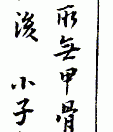 形無甲骨
後小子